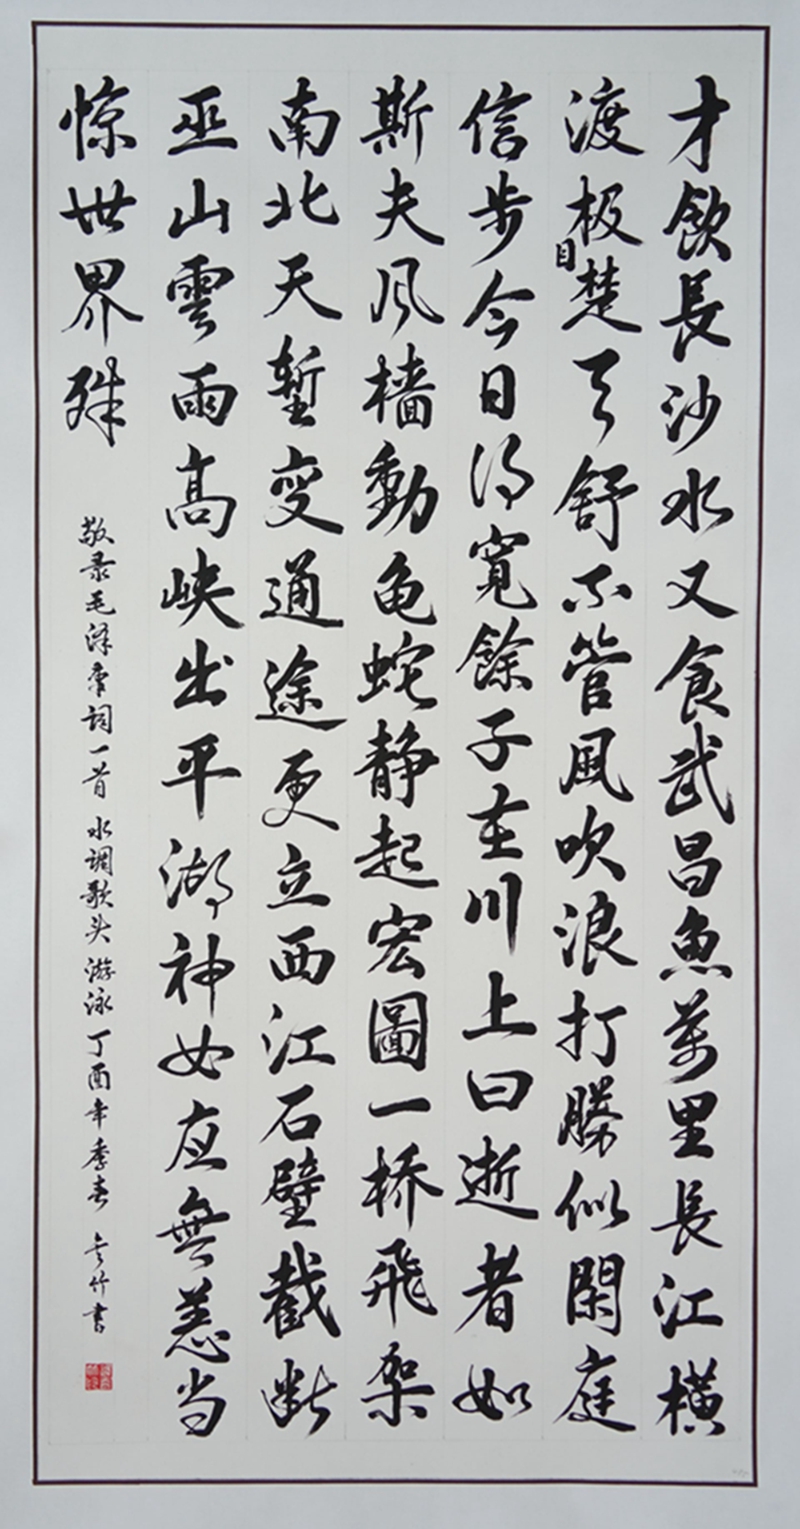 才飲長沙水又食武昌魚萬里長江橫
渡极目楚天舒不管風吹浪打勝似閑庭
信步今日得寬餘子在川上曰逝者如
斯夫风檣動龟蛇静起宏圖一桥飛架
南北天堑变通途更立西江石壁截断
巫山雲雨高峡出平湖神女应無恙当
惊世界殊
敬录毛泽东词一首 水调歌头 游泳 丁酉年季春 竹书